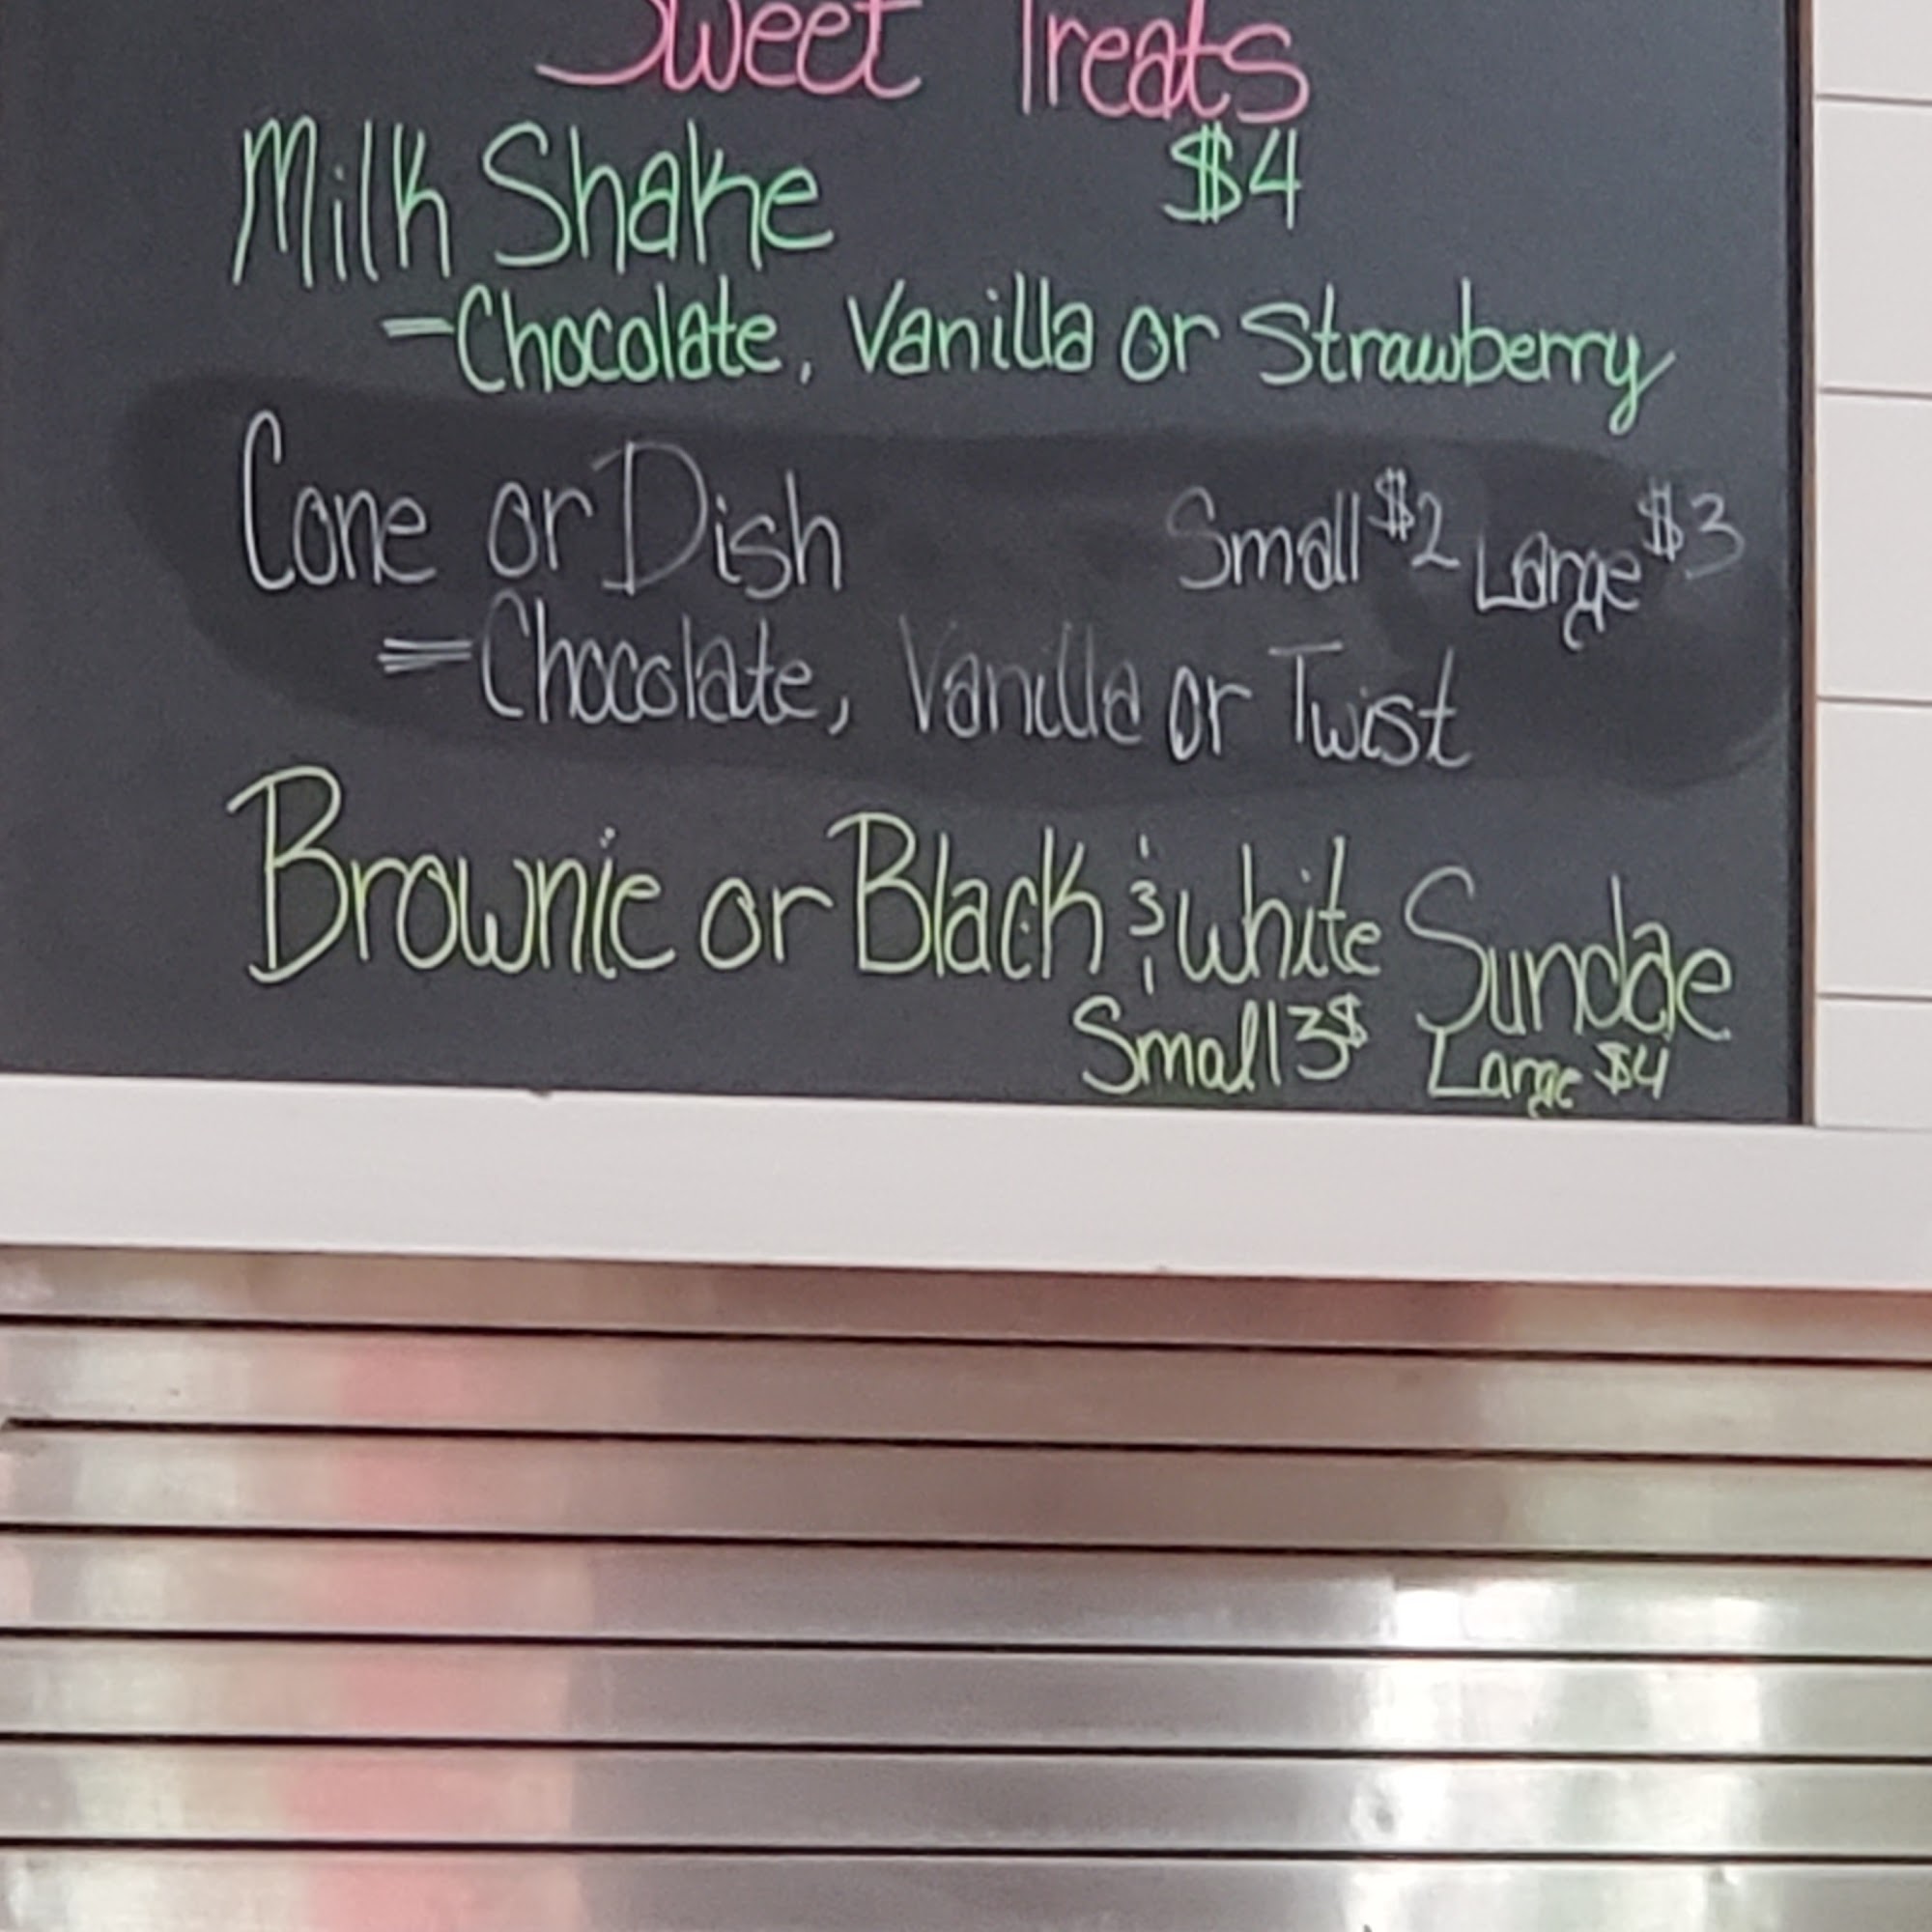 Sweet Treats
Milk Shake $4
-Chocolate, Vanilla or Strawberry
Cone or Dish Small $2 Large $3
-Chocolate, Vanilla or Twist
Brownie or Black & White Sundae
Small 3$ Large $4